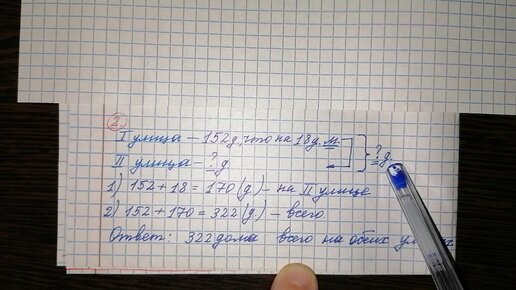 2.
I улица – 152 д., что на 18 д. м. ?д.
II улица – ? д.
1) 152 + 18 = 170 (д.) – на II улице
2) 152 + 170 = 322 (д.) – всего.
Ответ: 322 дома всего на обеих улицах.